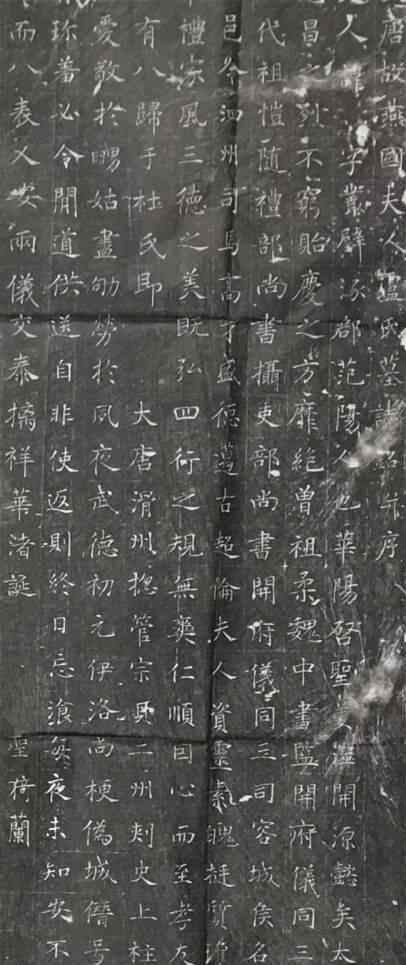 唐故燕國夫人盧氏墓誌銘并序
人諱 字叢璧涿郡范陽人也華陽啓聖 開源懿矣太
昌之列不窮貽慶之方靡絶曾祖柔魏中書監開府儀同三
代祖愷隨禮部尚書攝吏部尚書開府儀同三司容城侯名
邑令泗州司馬高才盛德邁古超倫夫人資靈肅魄挺質
禮宗風三德之美既弘四行之規無爽仁順因心而至孝友
有八歸于杜氏即 大唐滑州揔管宗 二州刺史上柱
愛敬於舅姑盡劬勞於夙夜武德初元伊洛尚梗僞城僭号
珎羞必令閒道供送自非使返則終日忘飡每夜未知安不
而八表乂安兩儀交泰摛祥華渚誕 聖掎蘭